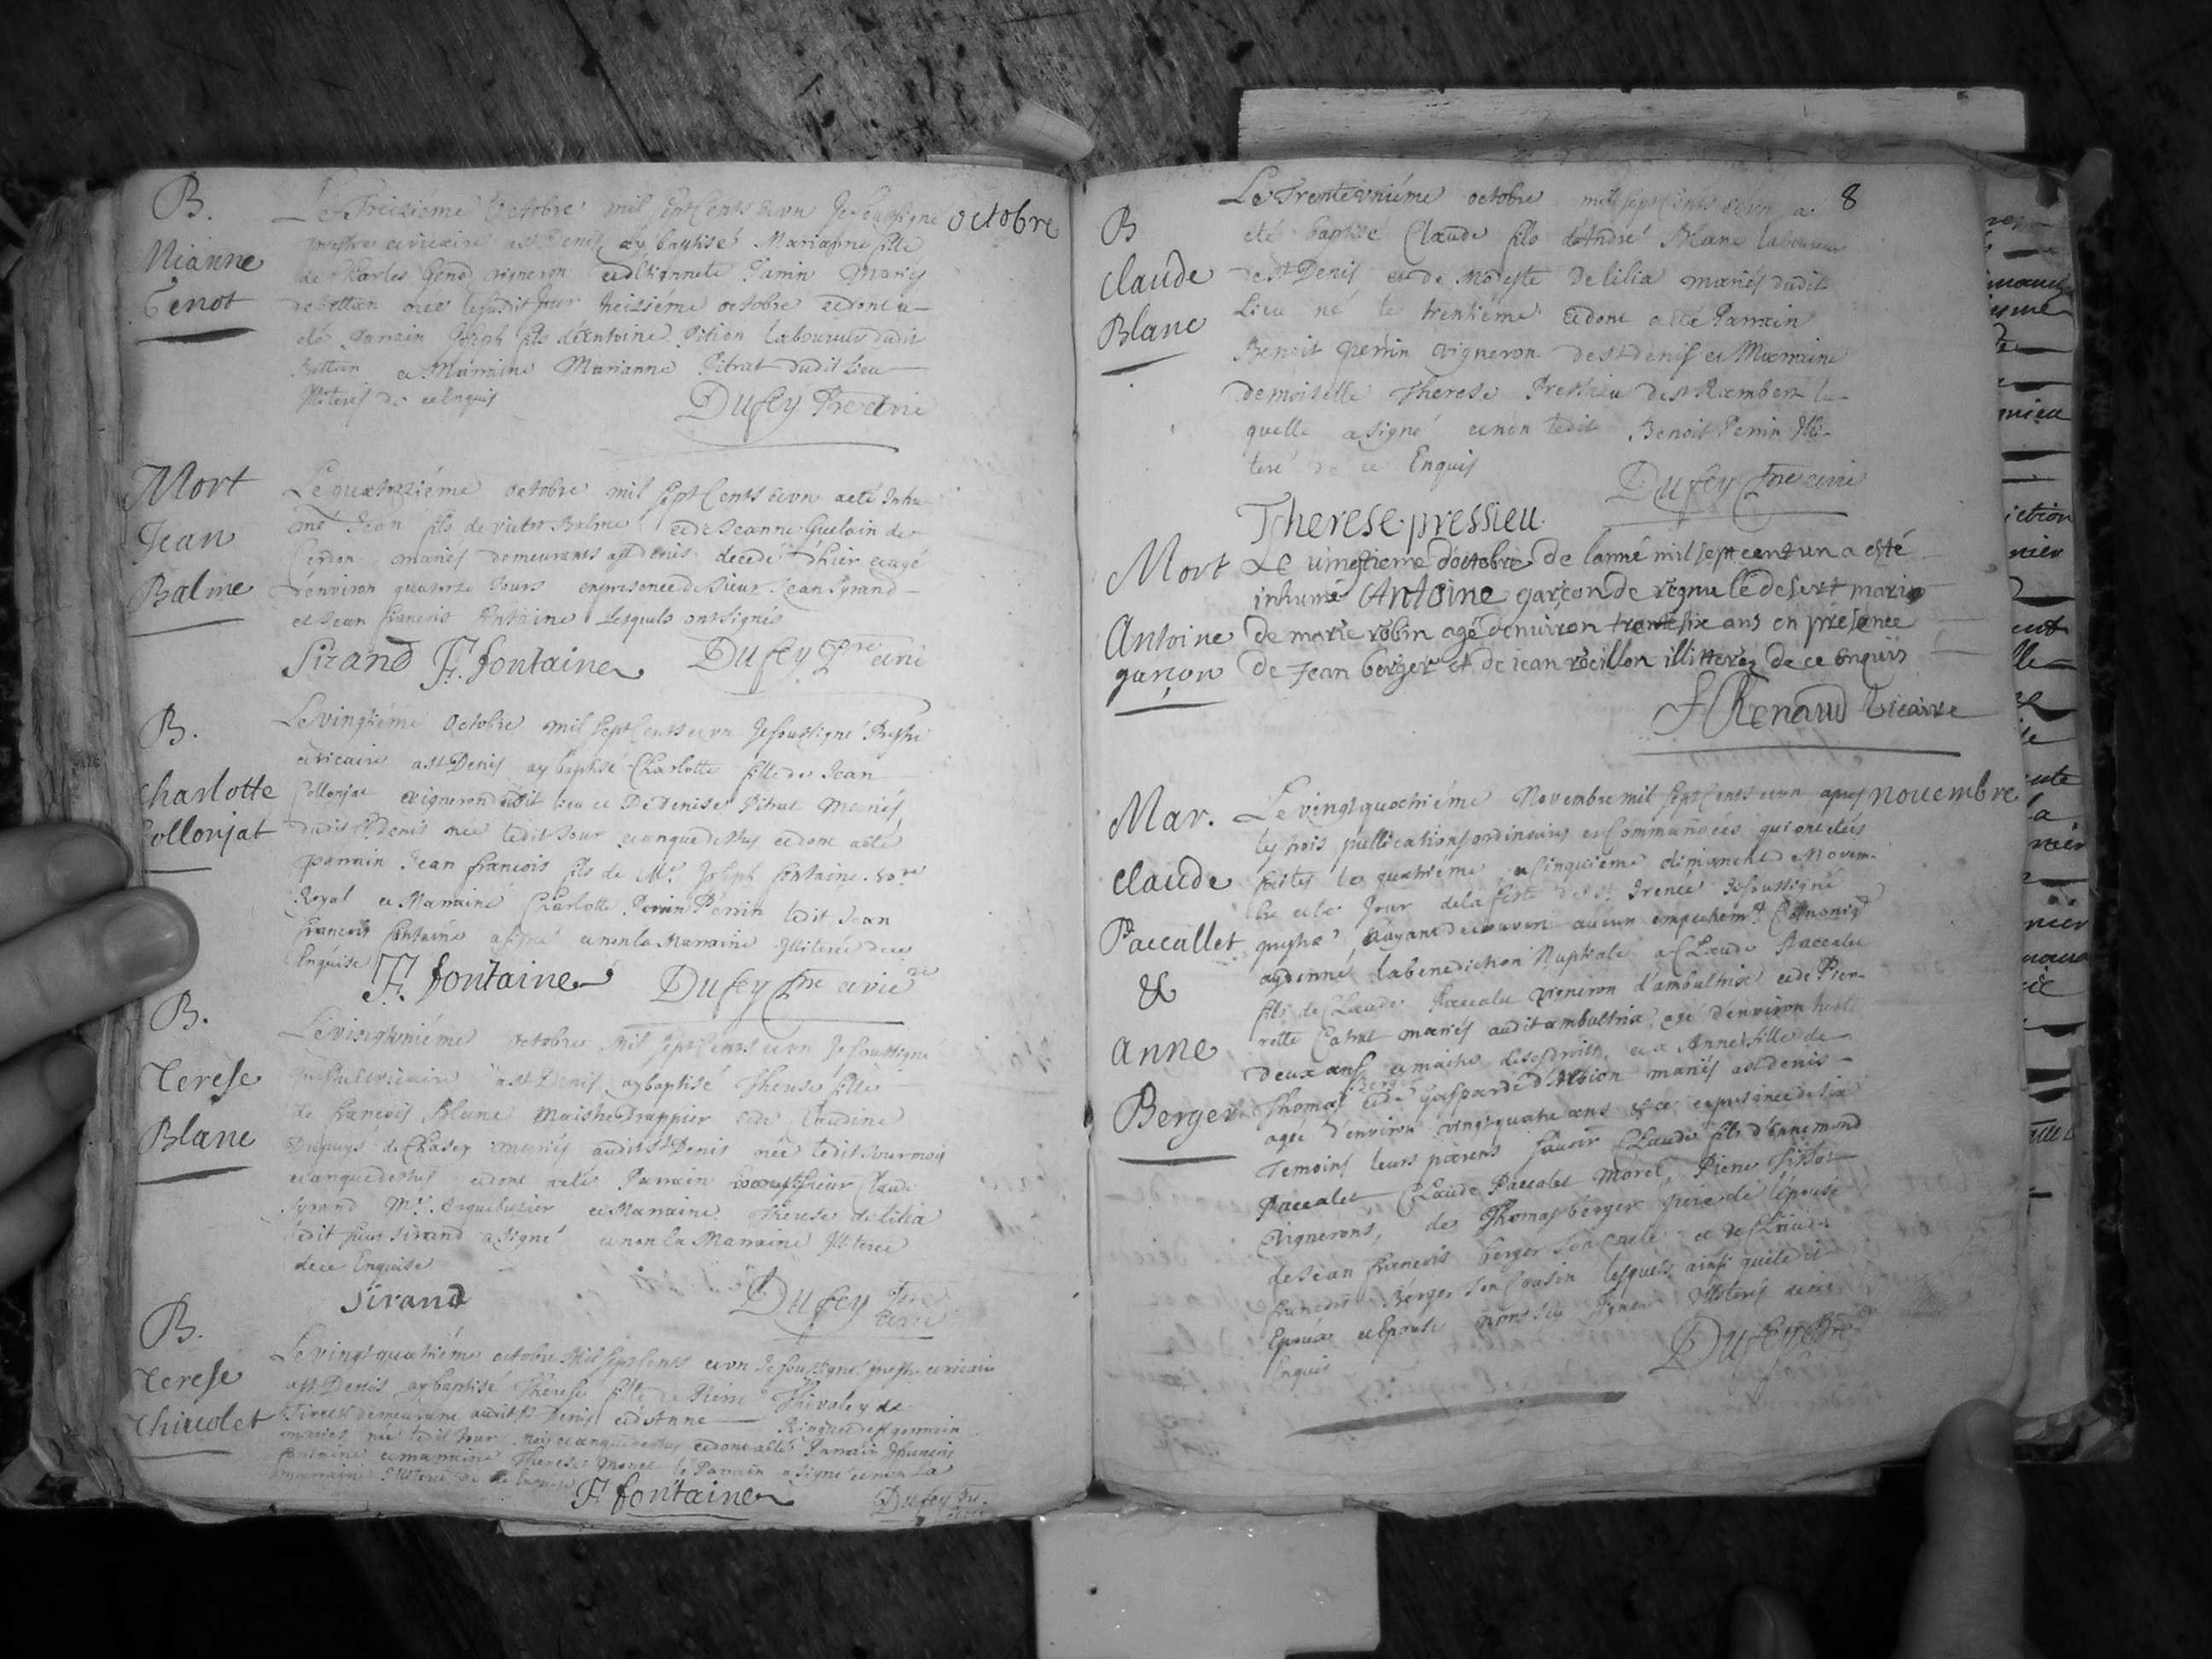 B.
Mianne
Genot
octobre
Le Treizième Octobre mil sept Cents et un Je soussigné
prestre et vicaire a st Denis ay baptisé Marianne fille
de Charles Genod vigneron et d'Etiennete Janin Mariés
de bettan née lesusdit jour treizième octobre et dont a
été Parrain Joseph fils d'Antoine Pition laboureur dudit
Bettan et Marraine Marianne Pitrat dudit Lieu
Illiterés de ce Enquis
Dufey Pre et vic
Mort
Jean
Balme
Le quatorzième octobre mil sept Cents et un a eté Inhu-
mé Jean fils de victor Balme et de Jeanne Guelain de
Cerdon mariés demeurants a st Denis decedé d'hier et agé
d'environ quatorze Jours en presence de Sieur Jean Syrand
et Jean francois fontaine Lesquels ont signés
Sirand F. fontaine Dufey Pre et vic
B.
Charlotte
Collonjat
Le vingtième Octobre mil sept Cents et un Je soussigné Prestre
et vicaire a st Denis ay baptisé Charlotte fille de Jean
Collonjat vigneron dudit lieu et De Denise Pitrat Mariés
dudit st Denis née ledit Jour et an que dessus et dont a eté
parrain Jean francois fils de Mr. Joseph fontaine
Royal et Marraine Charlotte Perrin ledit Jean
francois fontaine a signé et non la Marraine Illiterée de ce
Enquise
F. fontaine Dufey Pre et vic
B.
Terese
Blanc
Le vingtunième octobre Mil sept Cents et un Je soussigné
prestre et vicaire a st Denis ay baptisé Therese fille
de francois Blanc Maistre Drappier et de Claudine
de Chasey mariés audit st Denis née ledit Jour mois
et an que dessus et dont a eté Parrain sieur Claude
Syrand Mr. Arquebusier et Marraine Therese de lilia
ledit sieur sirand a signé et non la Marraine Illiterée
de ce Enquise
Sirand Dufey Pre et vic
B.
Terese
Chivolet
Le vingt quatrième octobre Mil sept Cents et un Je soussigné prestre et vicaire
a st Denis ay baptisé Therese fille de Pierre
demeurant audit st Denis et d'Anne
mariés née ledit Jour mois et an que dessus et dont a eté Parrain francois
fontaine et marraine Therese le Parrain a signé et non la
marraine Illiterée de ce Enquise
F. fontaine Dufey Pre
8
B
Claude
Blanc
Le Trente unième octobre mil sept Cents et un a
eté baptisé Claude fils d'André Blanc laboureur
de st Denis et de Modeste De lilia mariés dudit
Lieu né le trentième et dont a eté Parrain
Benoit Perrin vigneron de st denis et Marraine
demoiselle Therese Pressieu de st Rambert la-
quelle a signé et non ledit Benoit Perrin Illi-
teré de ce Enquis
Dufey Pre et vic
Therese pressieu
Mort
Antoine
garçon
Le vingtieme doctobre de lanné mil sept cent un a esté
inhumé Antoine garçon de regnu le desert mari
de marie robin agé denuiron trente six ans en présence
de Jean berger et de iean rocillon illitterez de ce enquis
F Renaud Vicaire
Mar.
Claude
Paccallet
&
Anne
Berger
novembre
Le vingt quatrième Novembre mil sept Cents et un apres
les trois publications ordinaires et Commandées qui ont etés
faites les quatrième et Cinquième dimanche de Novem-
bre et le Jour de la feste de st. Irenée Je soussigné
prestre n'ayant decouvert aucun empechemt Canoniq
ay donné la benediction Nuptiale a Claude Paccalet
fils de Claude Paccalet vigneron d'ambutrix et de Pier-
rette Catrat mariés audit ambutrix agé d'environ trente
deux ans et maitre de ses droits et a Anne fille de
Thomas Berger et de Gasparde d'Albion mariés a st denis
ageé d'environ vingt quatre ans & ce en presence de six
Temoins leurs parens scavoir Claude fils d'Ennemond
Paccalet Claude Paccalet Morel, Pierre Tissot
vignerons, de Thomas berger pere de l'épouse
de Jean francois berger son oncle et de Claude
francois Berger son Cousin lesquels ainsi que ledit
Epoux et Epouse n'ont sçu signer Illiterés de ce
Enquis
Dufey Pre